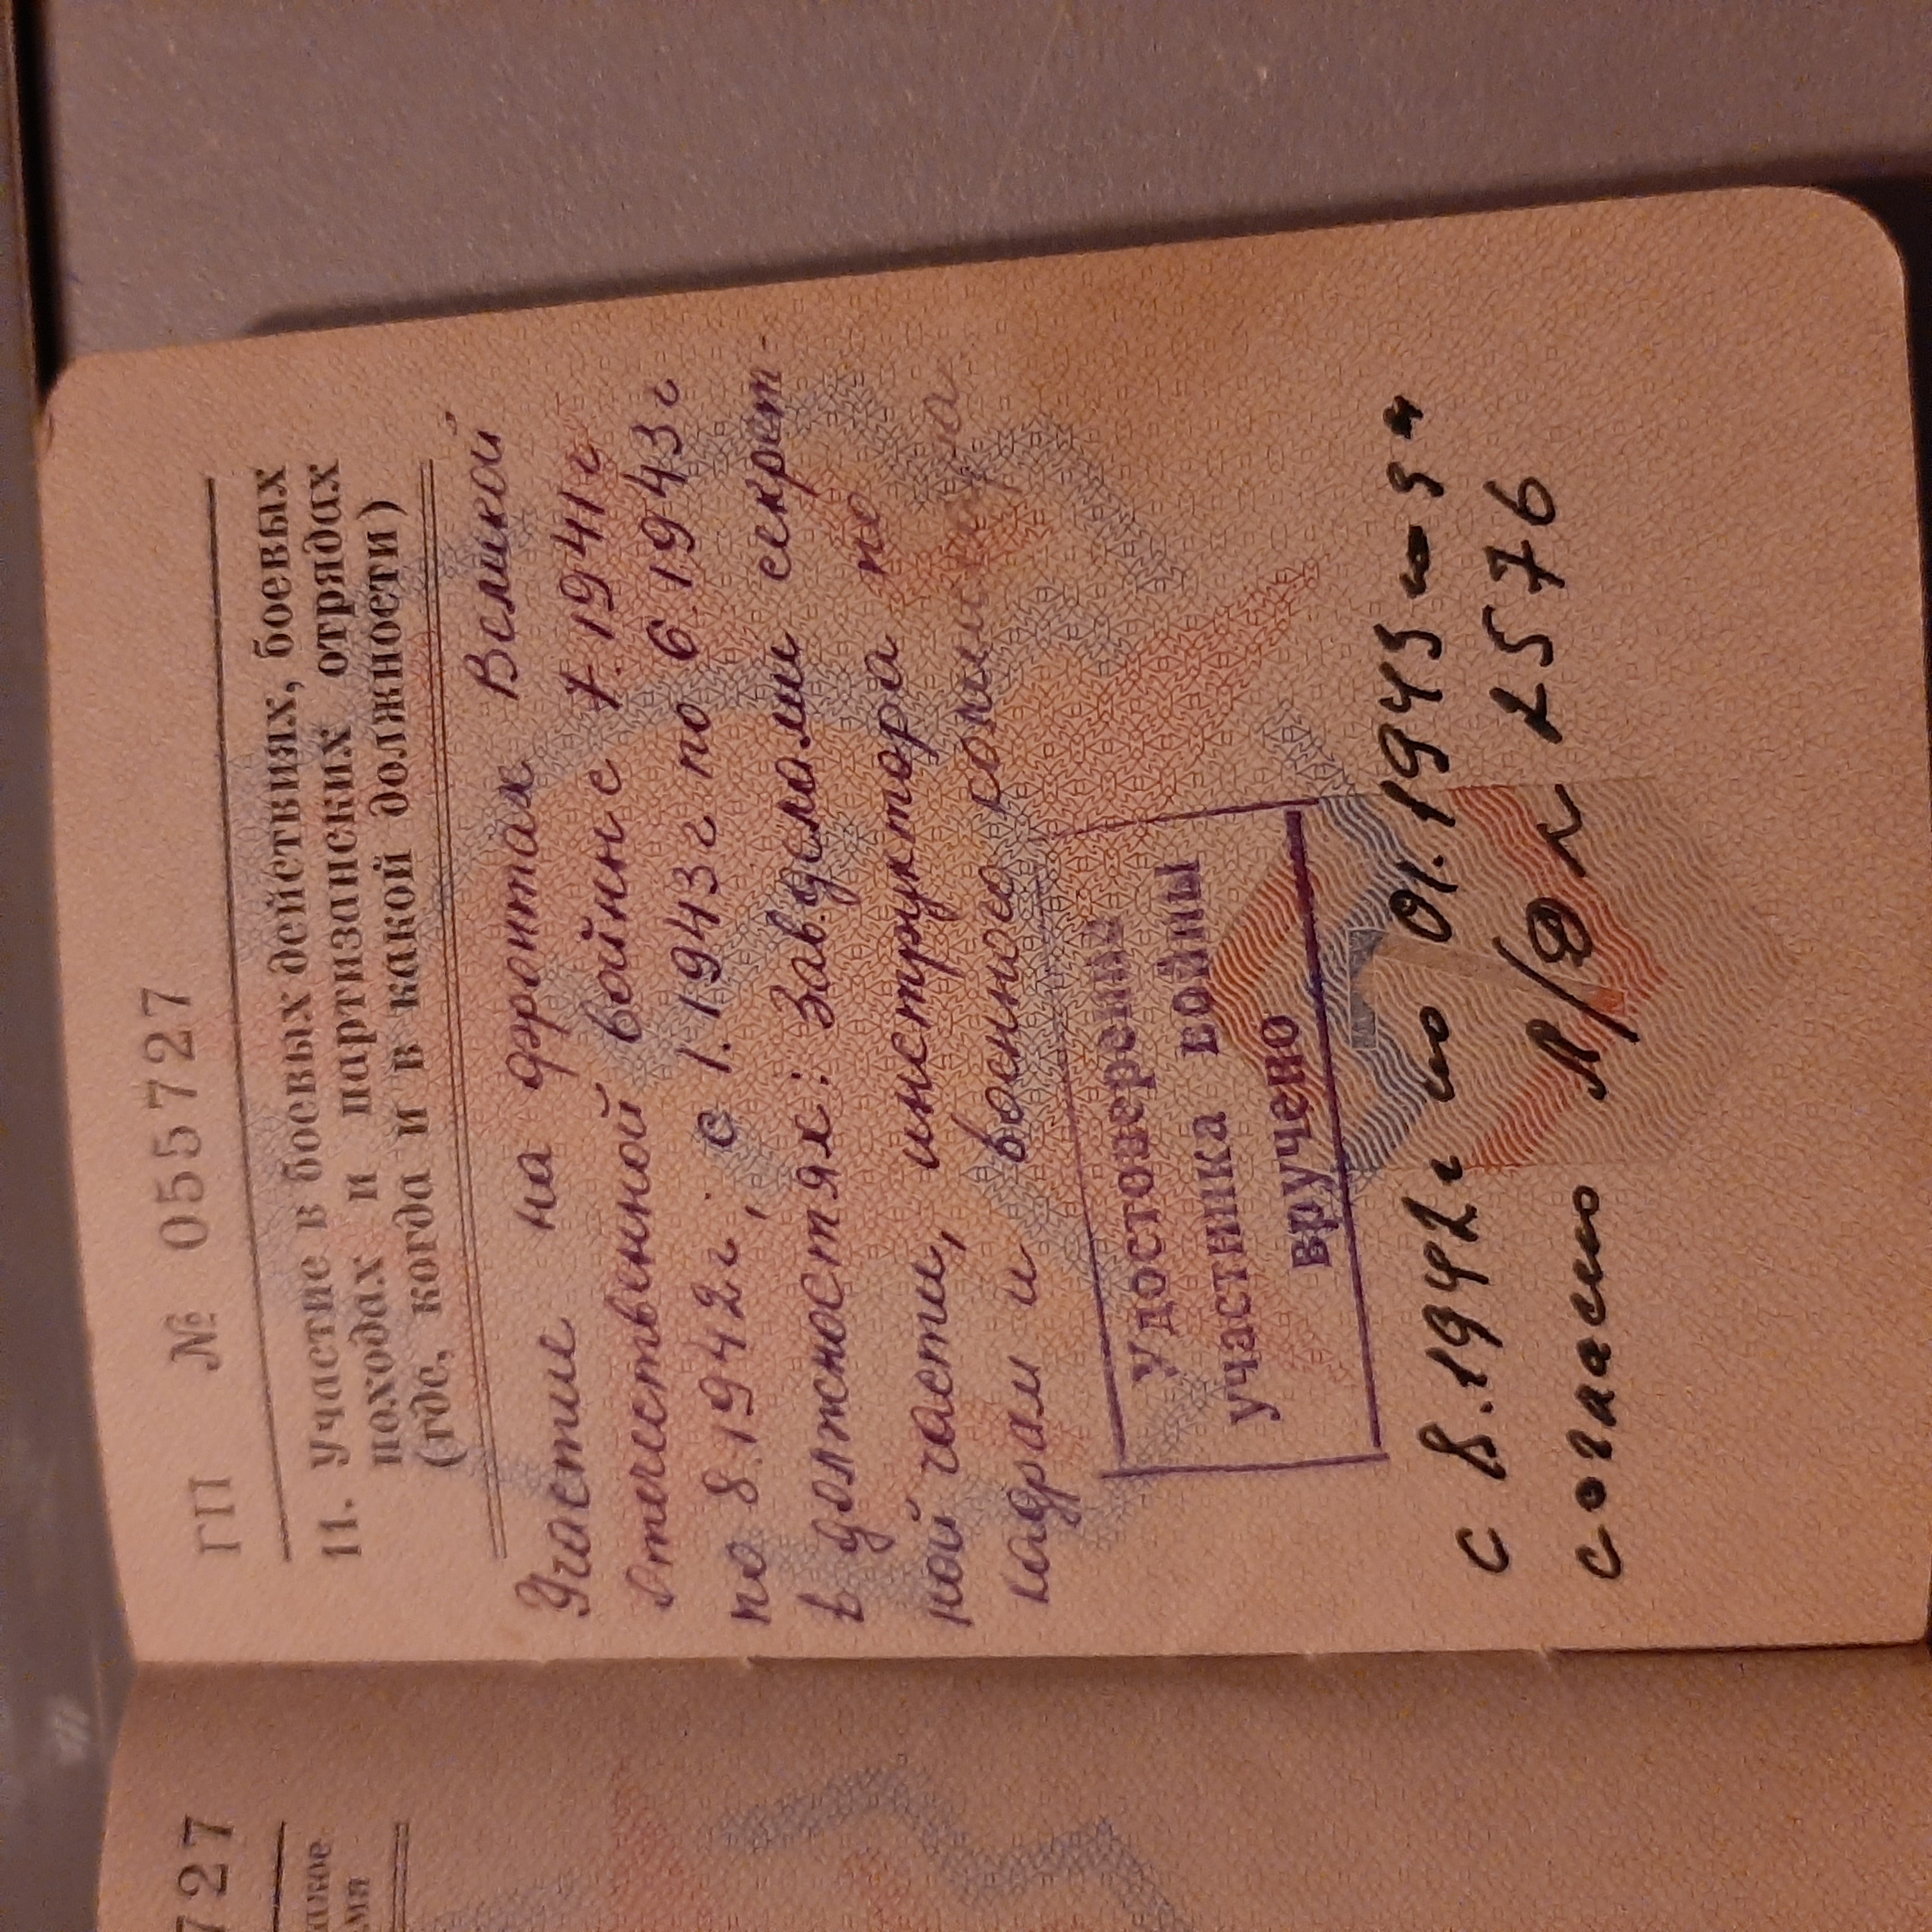 ГП № 055727
11. Участие в боевых действиях, боевых
походах и партизанских отрядах
(где, когда и в какой должности)
Участие на фронтах Великой
Отечественной войны с 7.1941г
по 8.1942г., с 1.1943г по 6.1943г
в должностях: Зав.делами секрет-
ной части, инструктора по
кадрам и военного комиссара
Удостоверение
участника войны
вручено
с 8.1942г по 01.1943
согласно Л/Д 2576
727